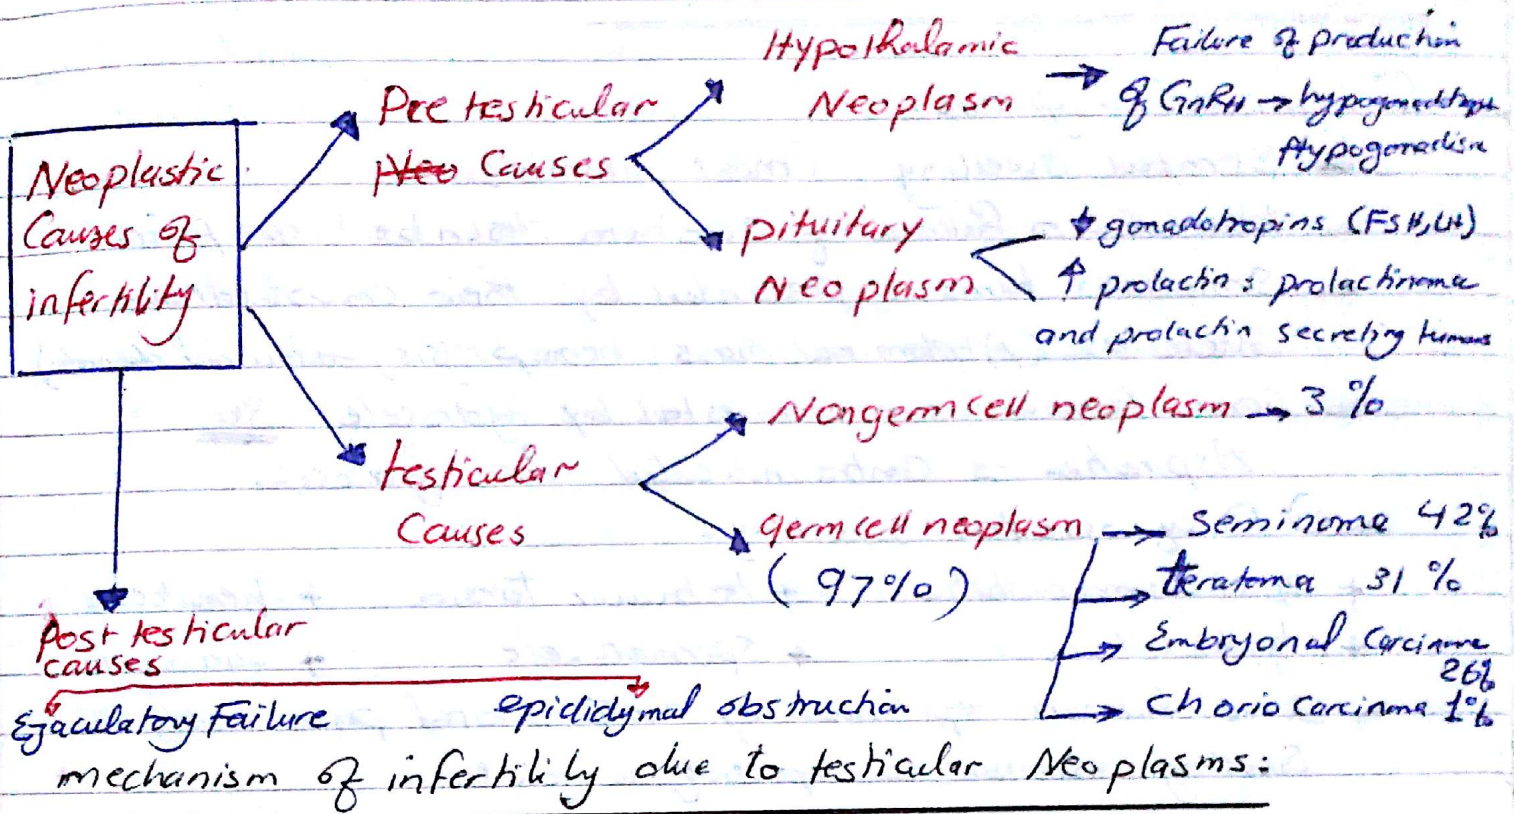 Neoplastic
Causes of
infertility
Pre testicular
Neo Causes
Hypothalamic
Neoplasm
→ Failure of production
of GnRH → hypogonadotropic
Hypogonadism
pituitary
Neoplasm
↓ gonadotropins (FSH, LH)
↑ prolactin : prolactinoma
and prolactin secreting tumors
testicular
Causes
Nongerm cell neoplasm → 3 %
germ cell neoplasm
(97%)
→ Seminoma 42%
→ teratoma 31 %
→ Embryonal Carcinoma
26%
→ Chorio Carcinoma 1%
post testicular
causes
Ejaculatory Failure
epididymal obstruction
mechanism of infertility due to testicular Neoplasms: